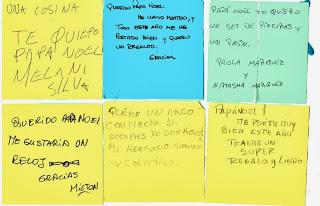 UNA COSINA
TE QUIERO
PAPA NOEL
MELANI
SILVA
QUERIDO PAPA NOEL:
ME LLAMO MATEO, Y
TODO ESTE AÑO ME HE
PORTADO BIEN Y QUIERO
UN REGALO.
GRACIAS
PAPÁ NOEL YO QUIERO
UN SET DE PINTURAS Y
UN PATÍN.
PAOLA MARQUEZ
Y
NATASHA MARQUEZ
QUERIDO PAPA NOEL
ME GUSTARIA UN
RELOJ
GRACIAS
MILTON
QUIERO UN ARCO
CON FLECHA
SOPAPAS YO SOY
MI HERMANO
UN COLECTIVO
PAPÁ NOEL!
ME PORTE MUY
BIEN ESTE AÑO
TRAEME UN
SUPER
REGALO Y LINDO